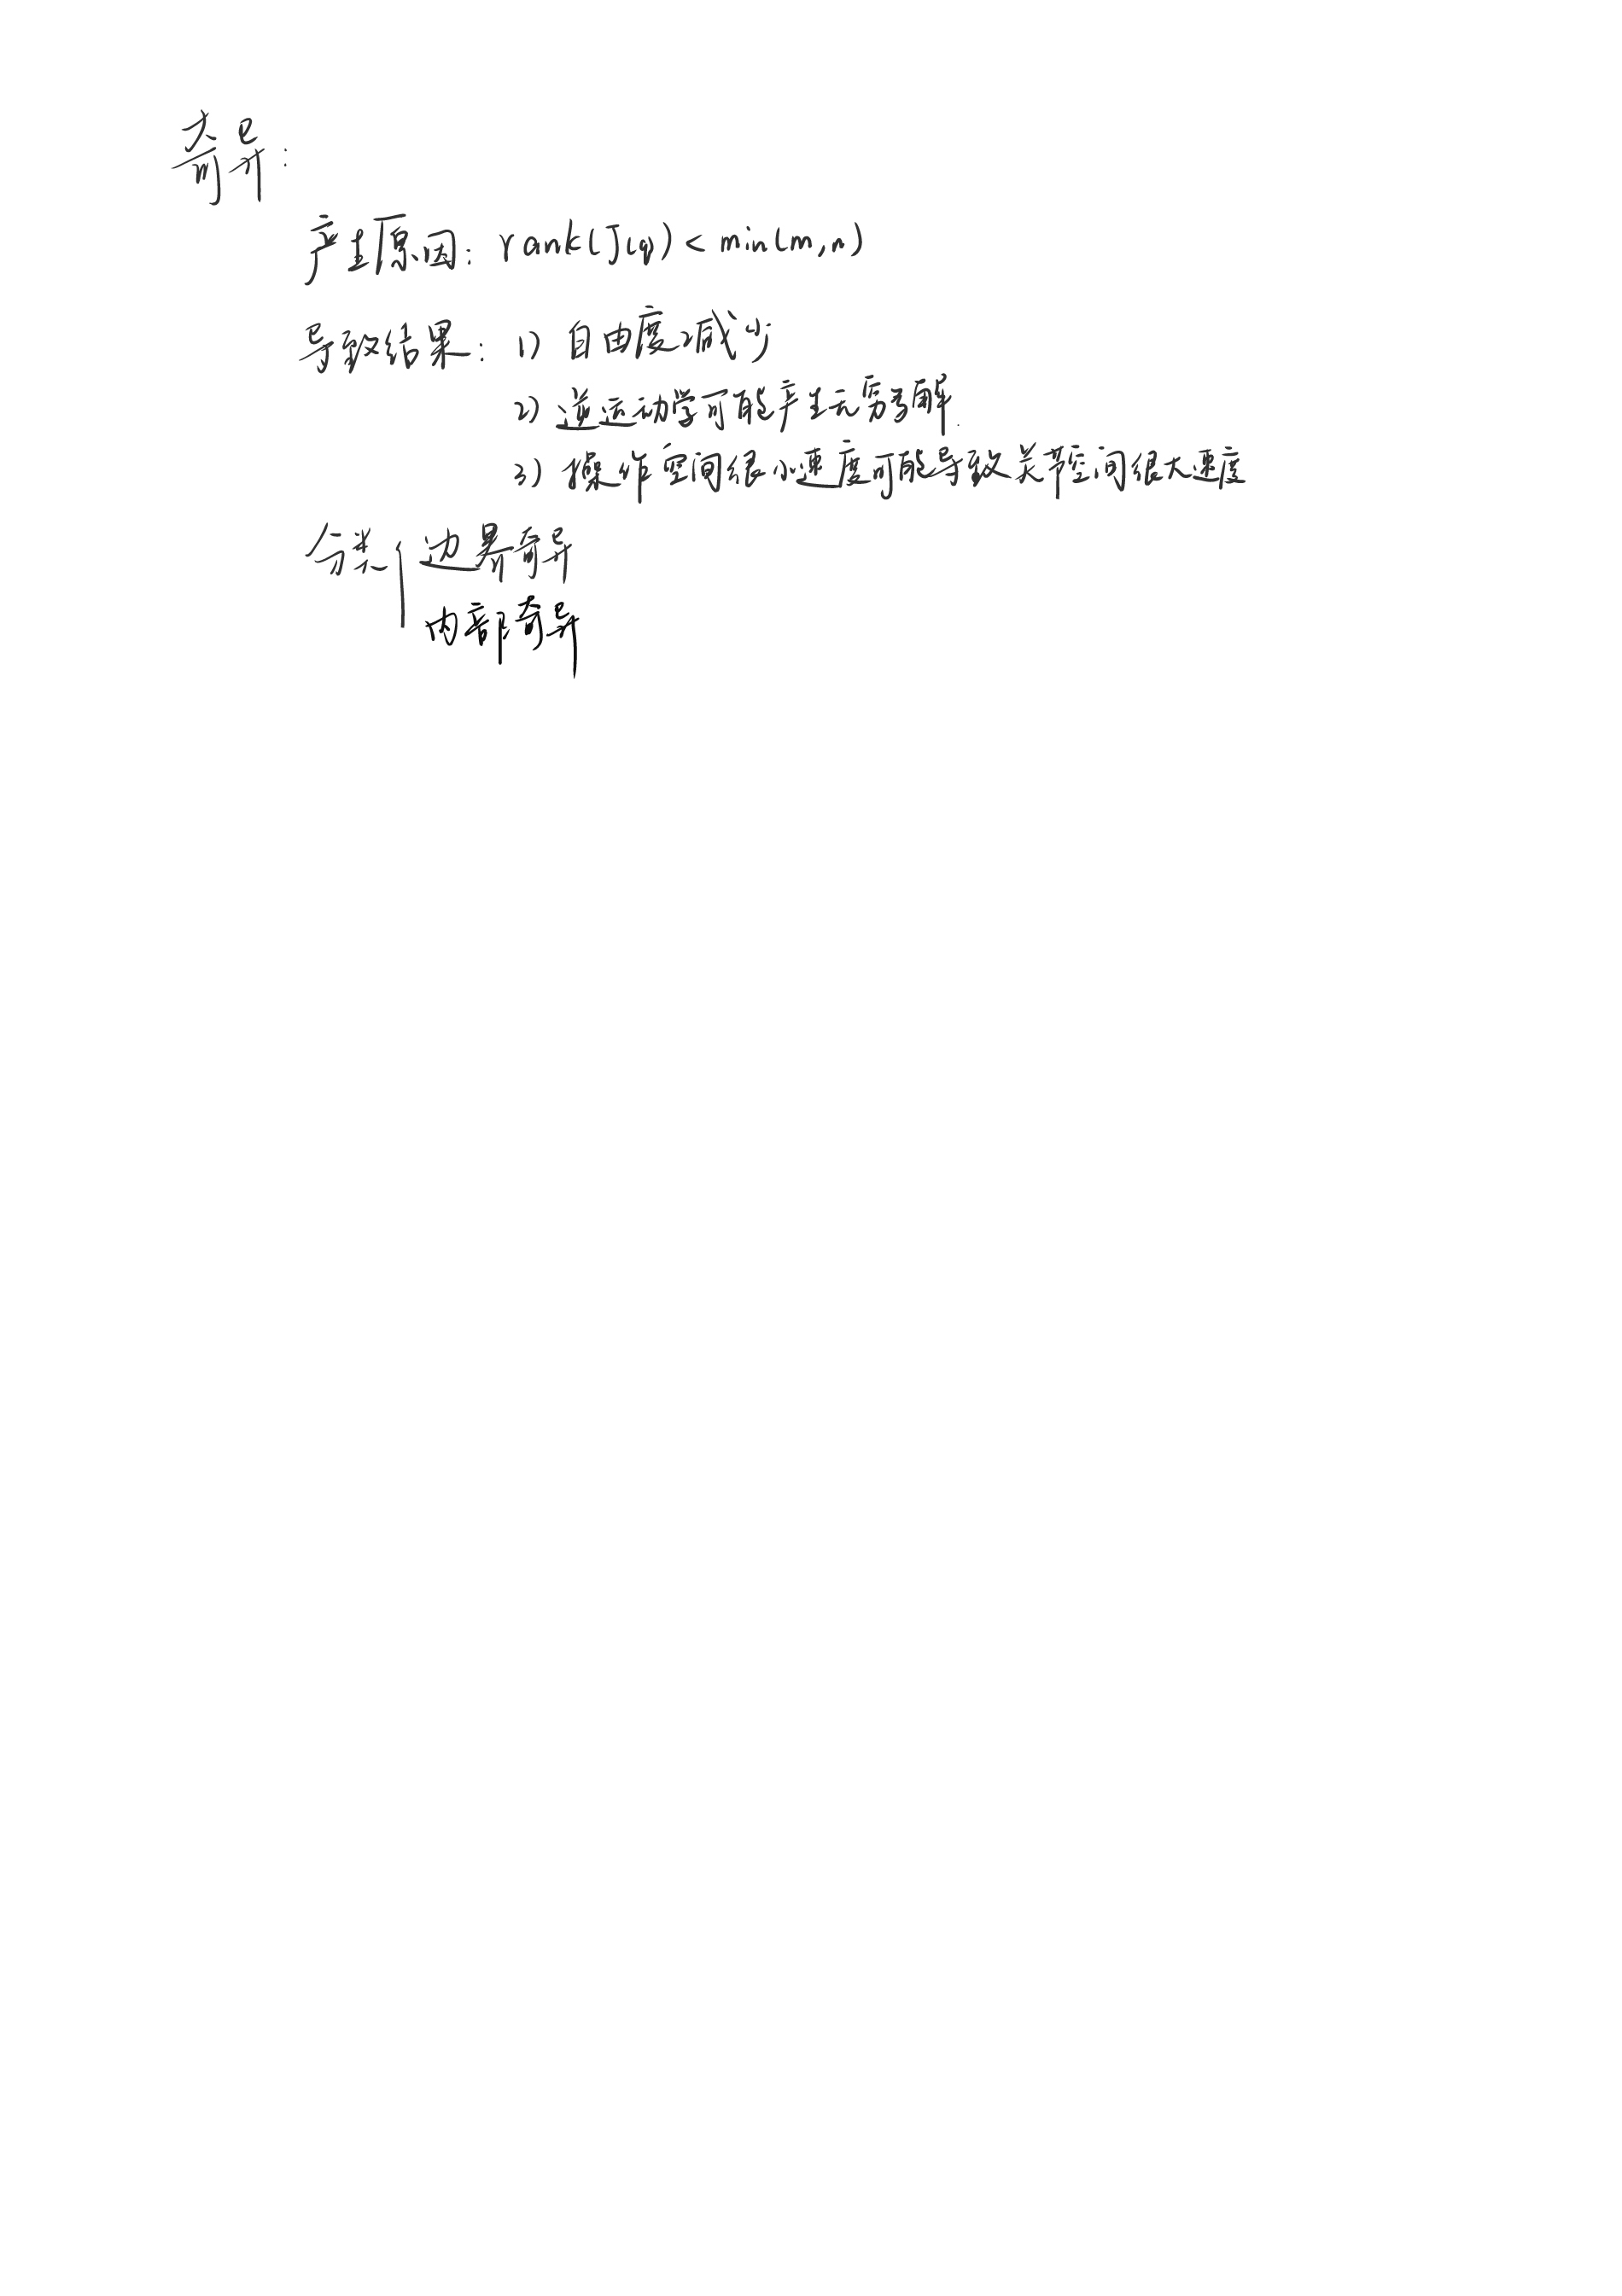 奇异:
产生原因: rank(J(q)) < min(m,n)
导致结果: 1) 自由度减少
2) 逆运动学可能产生无穷多解.
3) 操作空间很小速度可能导致关节空间很大速度
分类{ 边界奇异
内部奇异